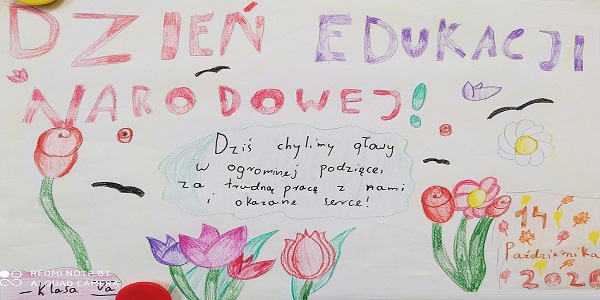 DZIEŃ EDUKACJI
NARODOWEJ!
Dziś chylimy głowy
w ogrominej podzięce,
za trudną pracę z nami
i okazane serce!
14
Października
2020
REDMI NOTE 8T
AI QUAD CAMERA
- Klasa Va